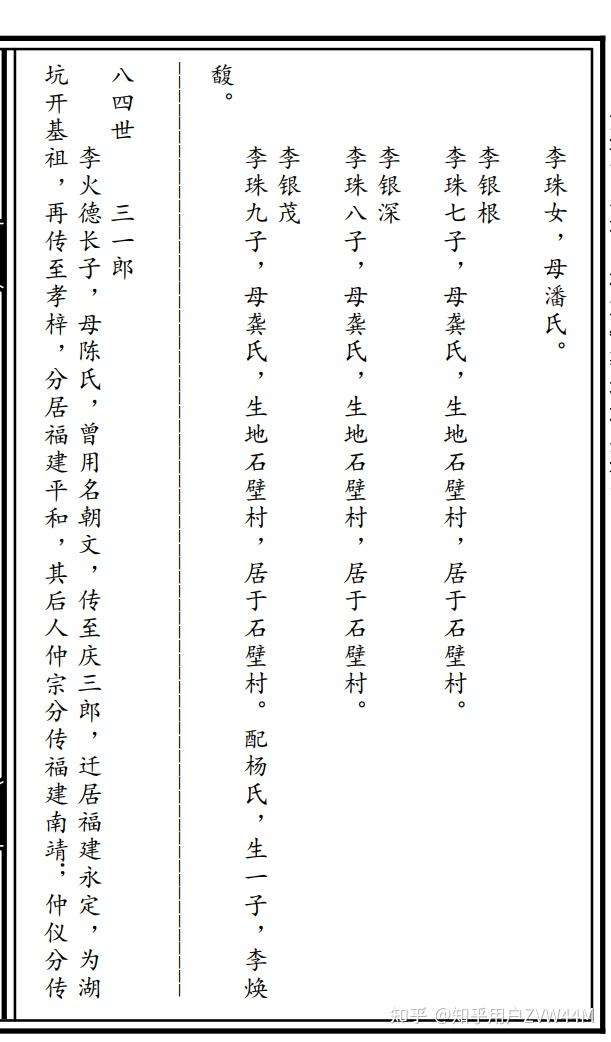 李珠女，母潘氏。
李银根
李珠七子，母龚氏，生地石壁村，居于石壁村。
李银深
李珠八子，母龚氏，生地石壁村，居于石壁村。
李银茂
李珠九子，母龚氏，生地石壁村，居于石壁村。配杨氏，生一子，李焕
馥。
八四世 三一郎
李火德长子，母陈氏，曾用名朝文，传至庆三郎，迁居福建永定，为湖
坑开基祖，再传至孝梓，分居福建平和，其后人仲宗分传福建南靖；仲仪分传
知乎 @知乎用户ZVW44M